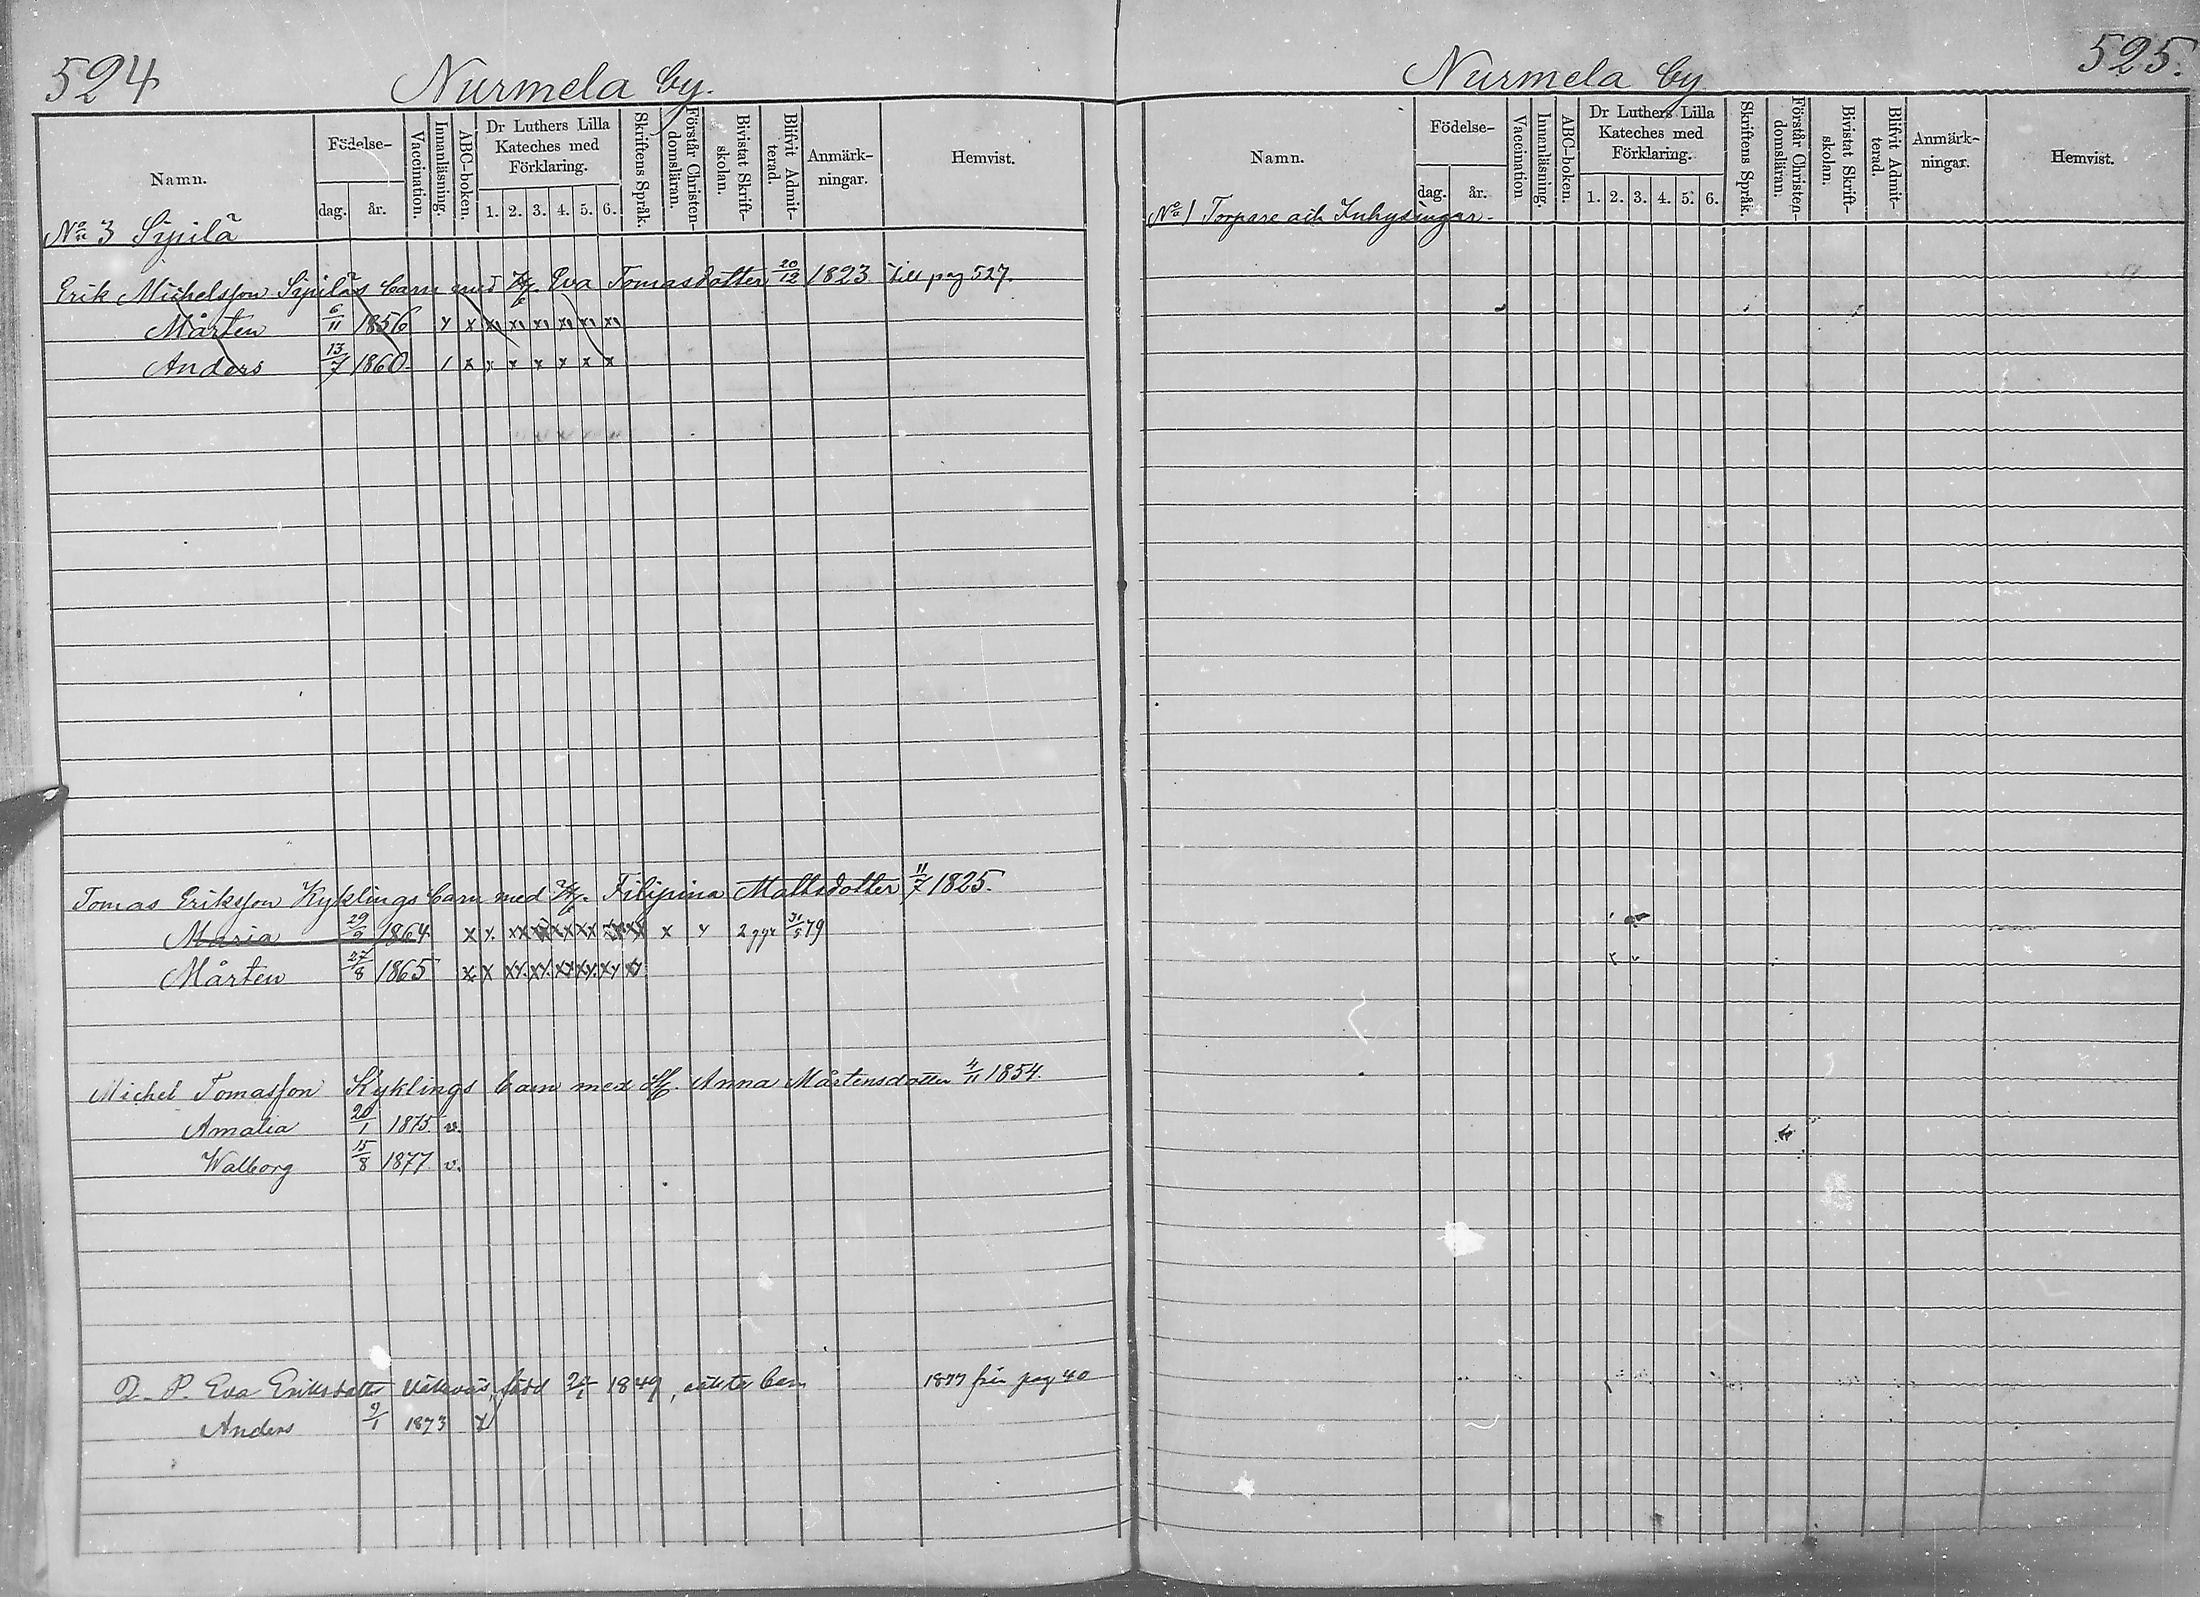 524
Nurmela by.
Namn.
Födelse-
dag.
år.
Vaccination.
Innanläsning.
ABC-boken.
Dr Luthers Lilla
Kateches med
Förklaring.
1. 2. 3. 4. 5. 6.
Skriftens Språk.
Förstår Christen-
domsläran.
Bivistat Skrift-
skolan.
Blifvit Admit-
terad.
Anmärk-
ningar.
Hemvist.
No 3 Sipilä
Erik Michelsson Sipiläs barn med H. Eva Tomasdotter 20/12 1823 till pag 527.
Mårten 6/11 1856
Anders 13/7 1860
Tomas Eriksson Kyklings barn med H. Filipina Mattsdotter 11/7 1825.
Maria 29/9 1864 2 ggr 31/5 79
Mårten 27/8 1865
Michel Tomasson Kyklings barn med H. Anna Mårtensdotter 4/11 1854.
Amalia 20/1 1875 v.
Walborg 15/8 1877 v.
D. P. Eva Eriksdotter född 1849, barn 1877 från pag 40
Anders 9/1 1873
525.
Nurmela by
Namn.
Födelse-
dag.
år.
Vaccination
Innanläsning.
ABC-boken.
Dr Luthers Lilla
Kateches med
Förklaring.
1. 2. 3. 4. 5. 6.
Skriftens Språk.
Förstår Christen-
domsläran.
Bivistat Skrift-
skolan.
Blifvit Admit-
terad.
Anmärk-
ningar.
Hemvist.
No 1 Torpare och Inhysingar.